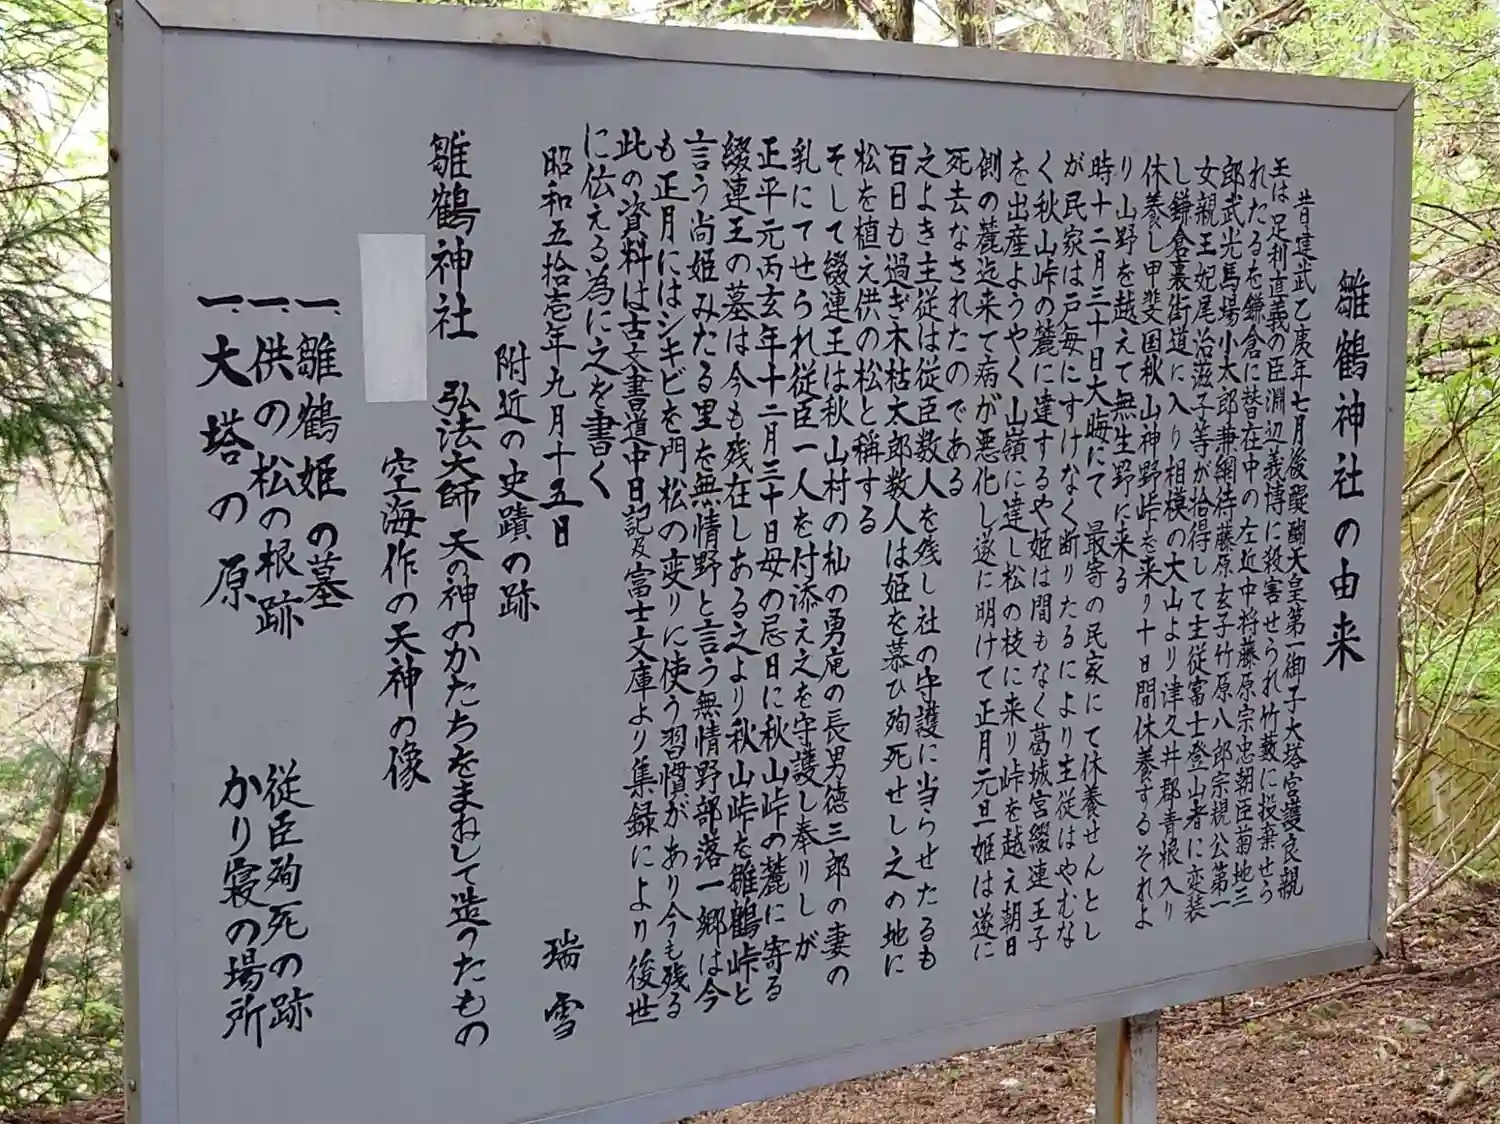 雛鶴神社の由来
昔建武乙庚年七月後醍醐天皇第一御子大塔宮護良親
王は足利直義の臣淵辺義博に殺害せられ竹藪に投棄せら
れたるを鎌倉に替在中の左近中将藤原宗忠朝臣菊地三
郎武光馬場小太郎兼綱待藤原玄子竹原八郎宗規公第一
女親王妃尾治滋子等が拾得して主従富士登山者に変装
し鎌倉裏街道に入り相模の大山より津久井郡青根入り
休養し甲斐国秋山神野峠を来り十日間休養するそれよ
り山野を越えて無生野に来る
時十二月三十日大晦にて 最寄の民家にて休養せんとし
が民家は戸毎にすけなく断りたるにより主従はやむな
く秋山峠の麓に達するや姫は間もなく葛城宮綴連王子
を出産ようやく山嶺に達し松の枝に来り峠を越え朝日
側の麓迄来て病が悪化し遂に明けて正月元旦姫は遂に
死去なされたのである
之よき主従は従臣数人を残し社の守護に当らせたるも
百日も過ぎ木枯太郎数人は姫を慕ひ殉死せし之の地に
松を植え供の松と稱する
そして綴連王は秋山村の杣の勇庵の長男徳三郎の妻の
乳にてせられ従臣一人を付添え之を守護し奉りしが
正平元丙玄年十二月三十日母の忌日に秋山峠の麓に寄る
綴連王の墓は今も残在しある之より秋山峠を雛鶴峠と
言う尚姫みたる里を無情野と言う無情野部落一郷は今
も正月にはシキビを門松の変りに使う習慣があり今も残る
此の資料は古文書道中日記及富士文庫より集録により後世
に伝える為に之を書く
昭和五拾壱年九月十五日 瑞雪
附近の史蹟の跡
雛鶴神社 弘法大師 天の神のかたちをまねして造つたもの
空海作の天神の像
一、雛鶴姫の墓
一、供の松の根跡 従臣殉死の跡
一、大塔の原 かり寝の場所